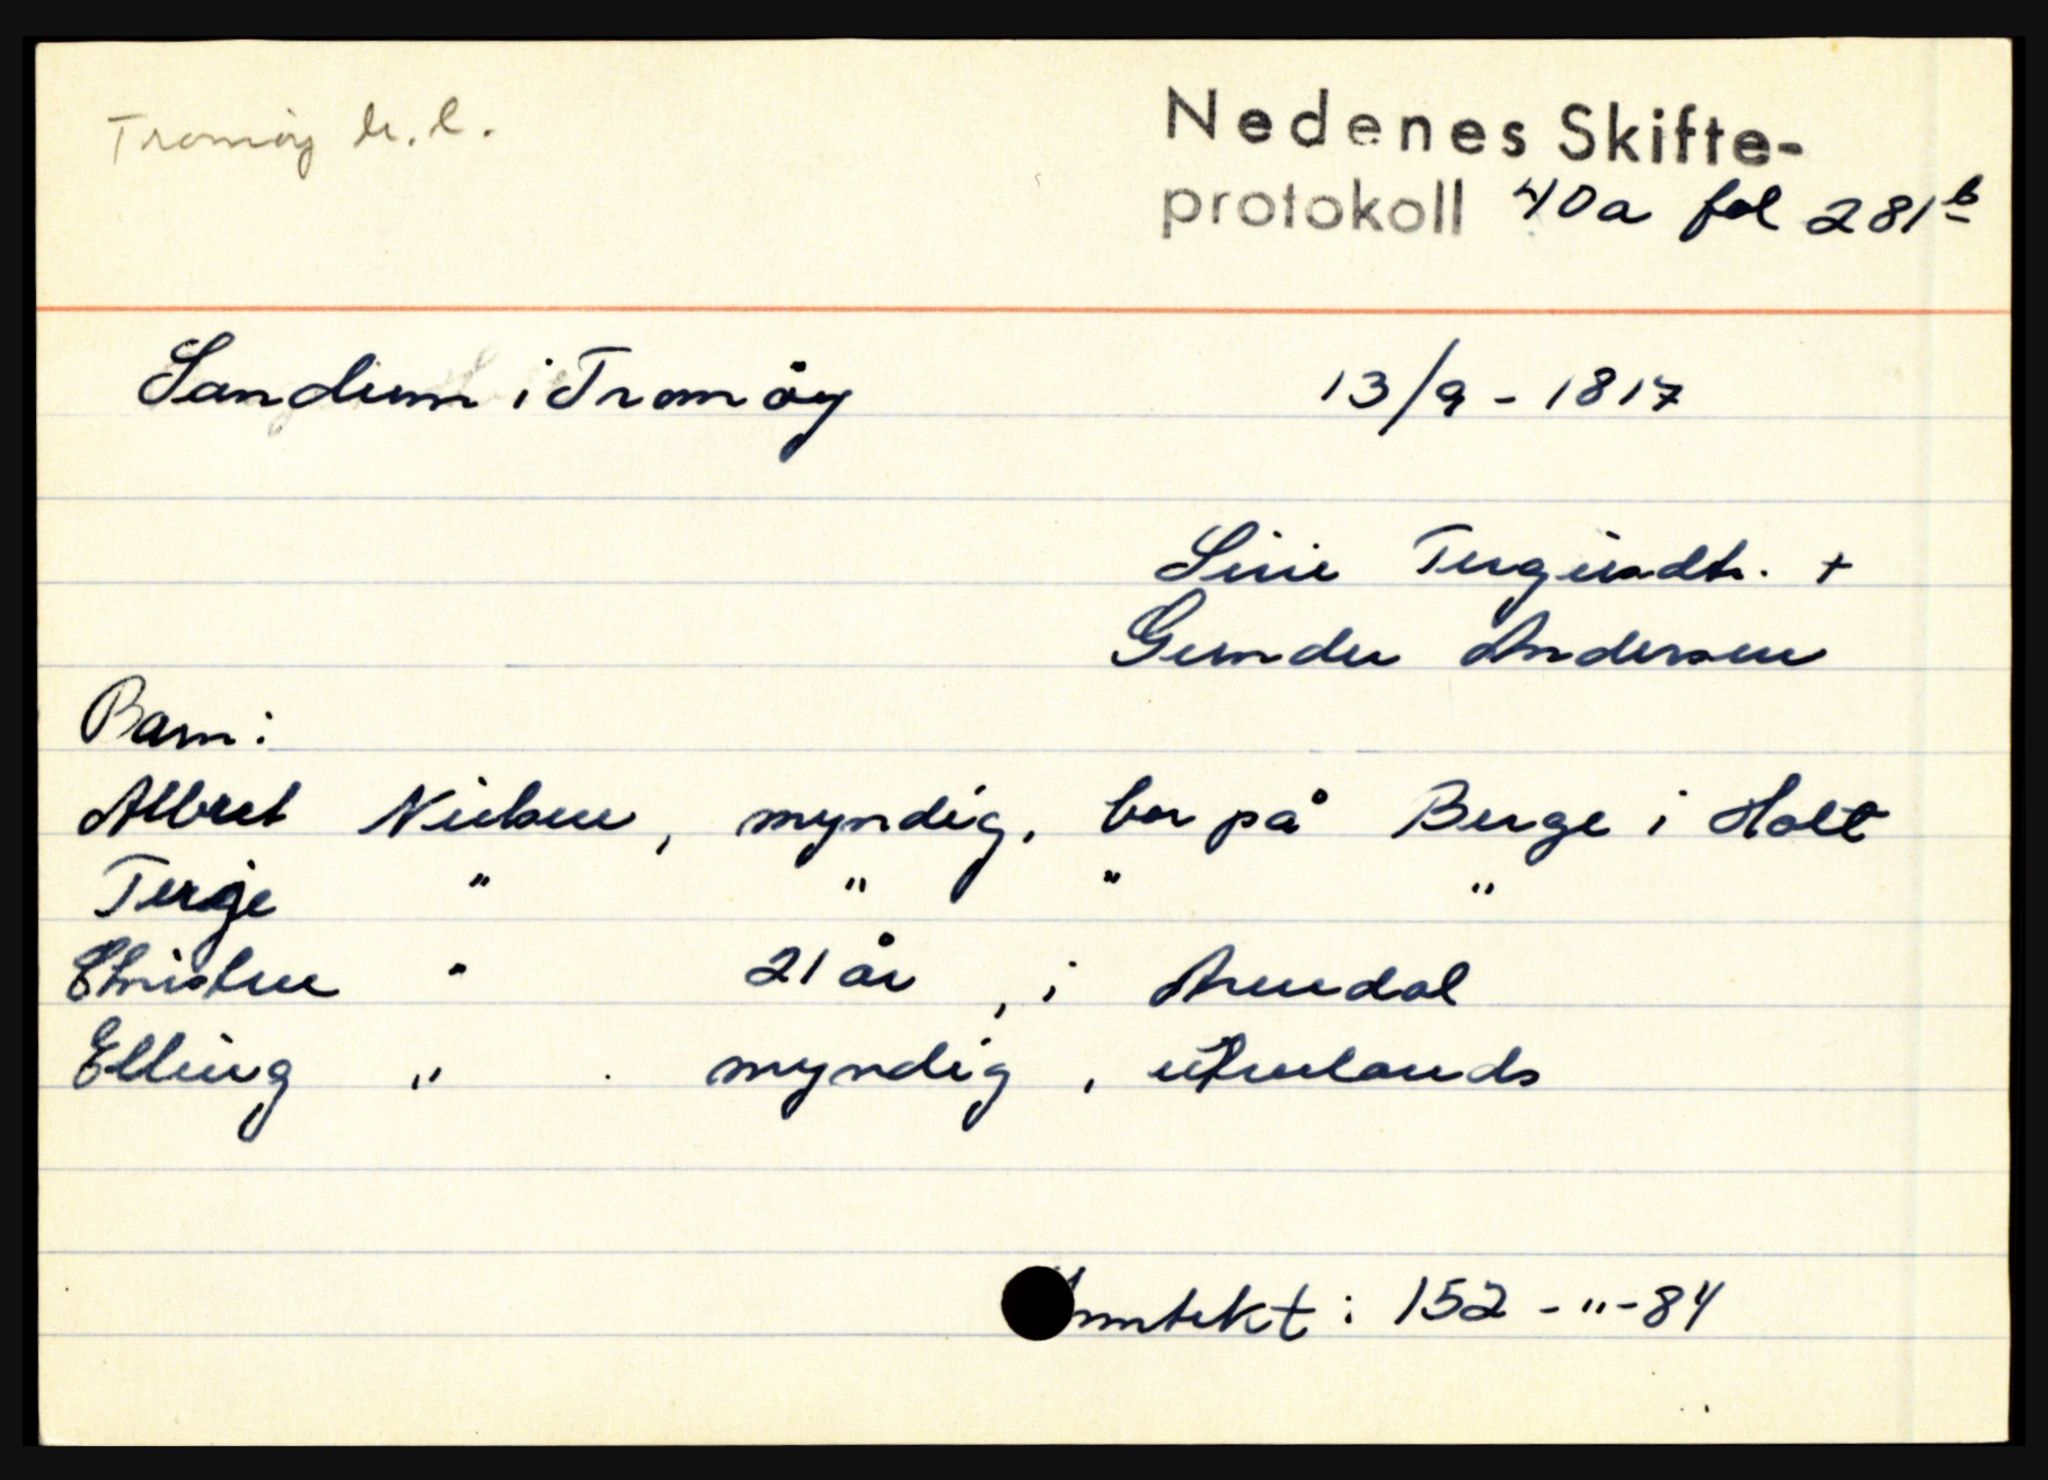 Tromöy h.l.
Nedenes Skifte-
protokoll 40a fol 281b
Sandum i Tromöy 13/9 - 1817
Sirie Tergiesdtr. +
Gunder Andersen
Barn:
Albret Nielsen, myndig, bor på Berge i Holt
Terje " " " "
Christen " 21 år, i Arendal
Elling " myndig, utenlands
Inntekt: 152 - " - 84